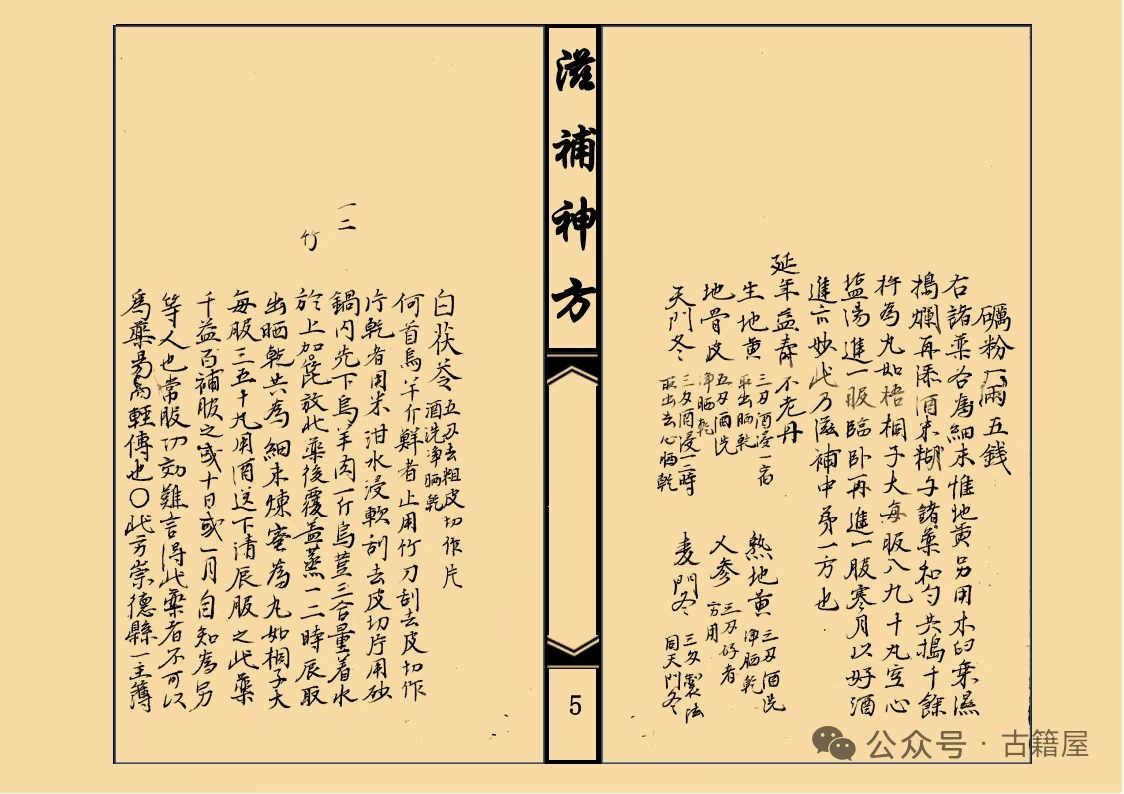 礪粉一兩五錢
右諸藥各為細末惟地黃另用木臼乗濕
搗爛再添酒末糊子諸藥和勻共搗千餘
杵為丸如梧桐子大每服八九十丸空心
塩湯進一服臨卧再進一服寒月以好酒
進亦妙此乃滋補中苐一方也
延年益壽不老丹
生地黃 三刄酒浸一宿取出晒乾 熟地黃 三刄酒洗淨晒乾
地骨皮 五刄酒洗淨晒乾 人參 三刄好者方用
天門冬 三刄酒浸一二時取出去心晒乾 麦門冬 三刄製法同天門冬
滋補神方
5
白茯苓 五刄去粗皮切作片酒洗淨晒乾
何首烏半斤鮮者止用竹刀刮去皮切作
片乾者用米泔水浸軟刮去皮切片用砂
鍋內先下烏羊肉一斤烏荳三合量着水
於上加篦放此藥後覆盖蒸一二時辰取
出晒乾共為細末煉蜜為丸如桐子大
每服三五十丸用酒送下清辰服之此藥
千益百補服之或十日或一月自知為另
等人也常服功効難言得此藥者不可以
爲藥易而輕傳也〇此方崇德縣一主薄
一二
竹
公众号·古籍屋